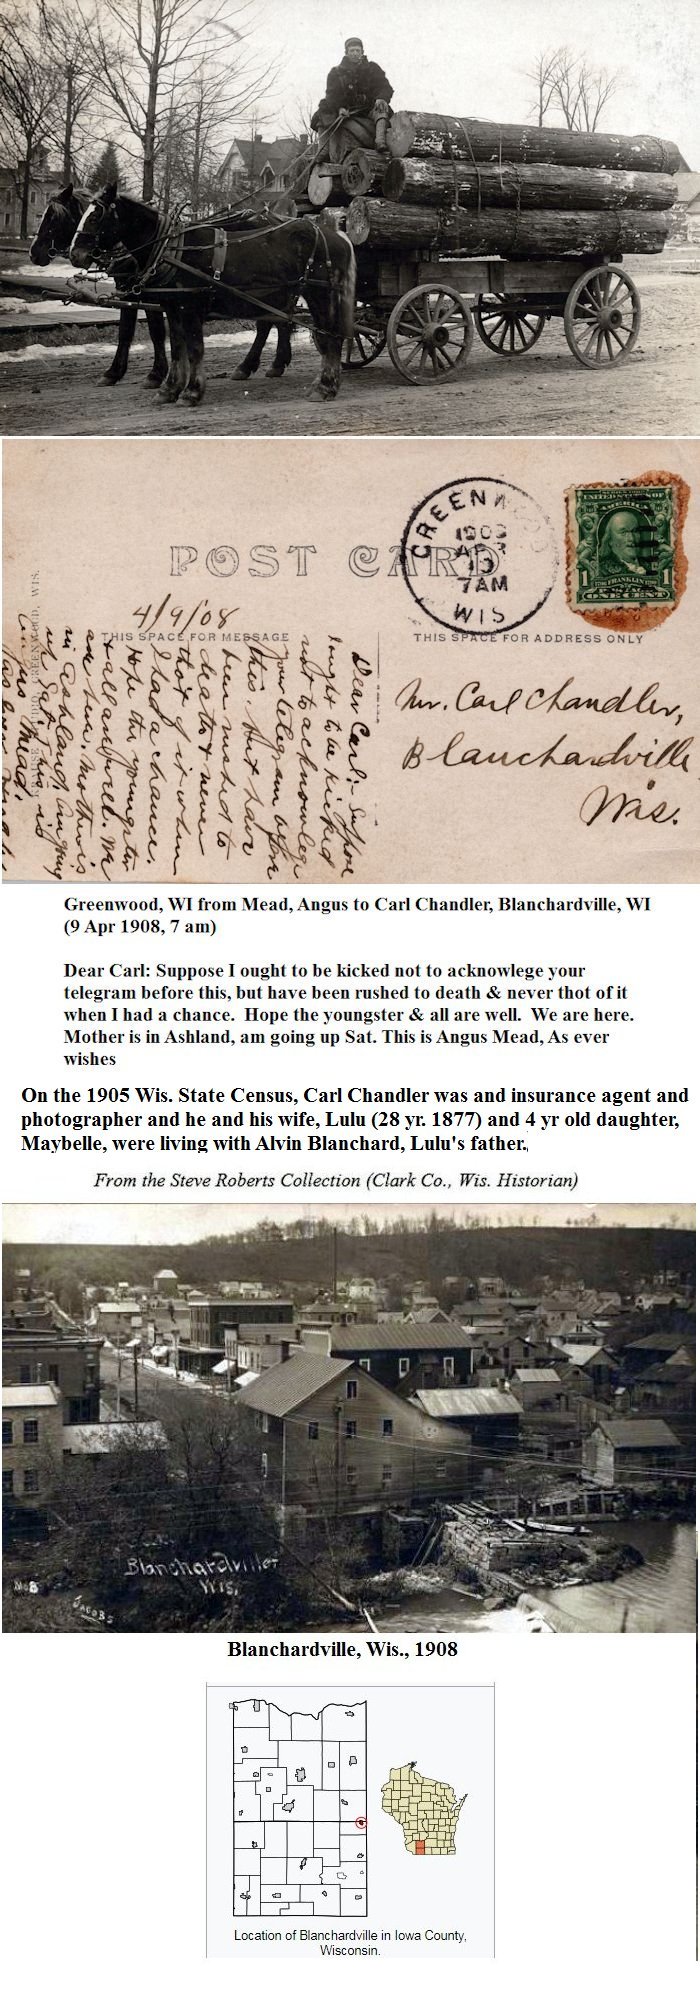 POST CARD
GREENWOOD
1908
APR
10
7AM
WIS
SERIES 1902
UNITED STATES OF
AMERICA
1 FRANKLIN 1
POSTAGE
ONE CENT
4/9/08
THIS SPACE FOR MESSAGE
THIS SPACE FOR ADDRESS ONLY
Dear Carl:- Suppose
I ought to be kicked
not to acknowlege
your telegram before
this. But have
been rushed to
death & never
thot of it when
I had a chance.
Hope the youngster
& all are well. We
are here. Mother is
in Ashland. Am going
up Sat. This is
Angus Mead.
Mr. Carl Chandler,
Blanchardville
Wis.
GREENWOOD, WIS.
Greenwood, WI from Mead, Angus to Carl Chandler, Blanchardville, WI
(9 Apr 1908, 7 am)
Dear Carl: Suppose I ought to be kicked not to acknowlege your
telegram before this, but have been rushed to death & never thot of it
when I had a chance.  Hope the youngster & all are well.  We are here.
Mother is in Ashland, am going up Sat. This is Angus Mead, As ever
wishes
On the 1905 Wis. State Census, Carl Chandler was and insurance agent and
photographer and he and his wife, Lulu (28 yr. 1877) and 4 yr old daughter,
Maybelle, were living with Alvin Blanchard, Lulu's father.
From the Steve Roberts Collection (Clark Co., Wis. Historian)
Blanchardville
Wis.
JACOBS
Blanchardville, Wis., 1908
Location of Blanchardville in Iowa County,
Wisconsin.